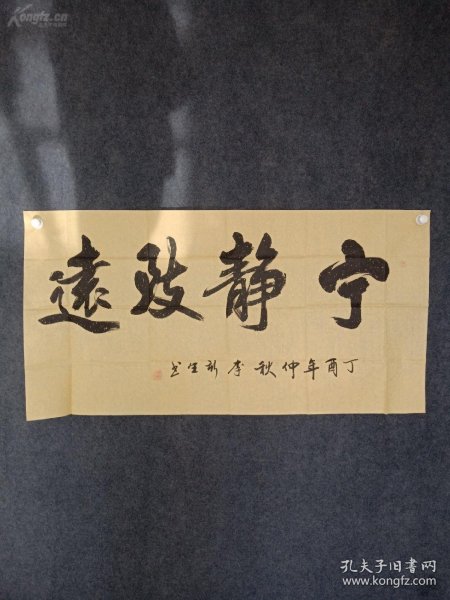 宁静致遠
丁酉年仲秋李新生书
Kongfz.cn
孔夫子旧书网
www.kongfz.com